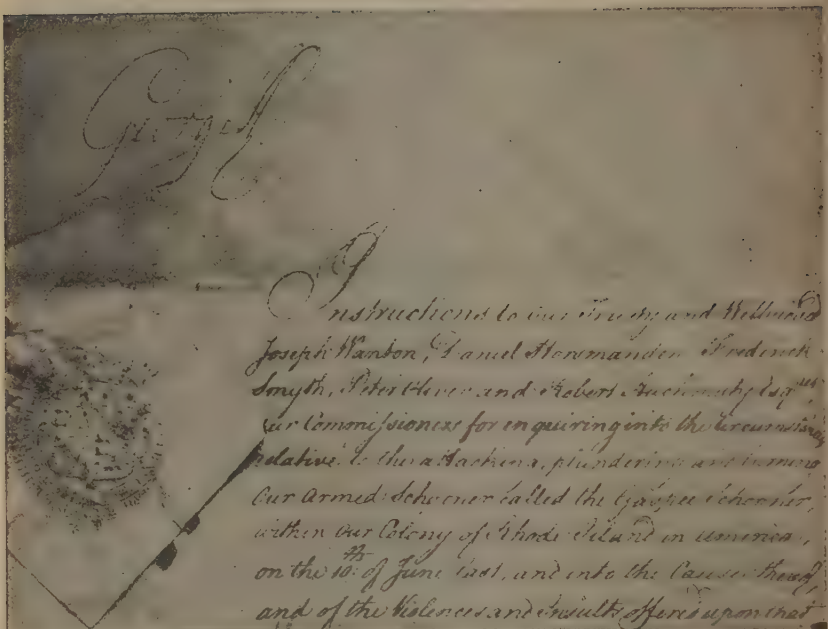 George R
Instructions to our Trusty and Wellbeloved
Joseph Wanton, Daniel Horsmanden Frederick
Smyth, Peter Oliver and Robert Auchmuty Esqrs.
our Commissioners for enquiring into the Circumstances
relative to the attacking, plundering and burning
Our Armed Schooner called the Gaspee Schooner,
within our Colony of Rhode Island in America,
on the 10th of June last, and into the Causes thereof,
and of the Violences and Insults offered upon that